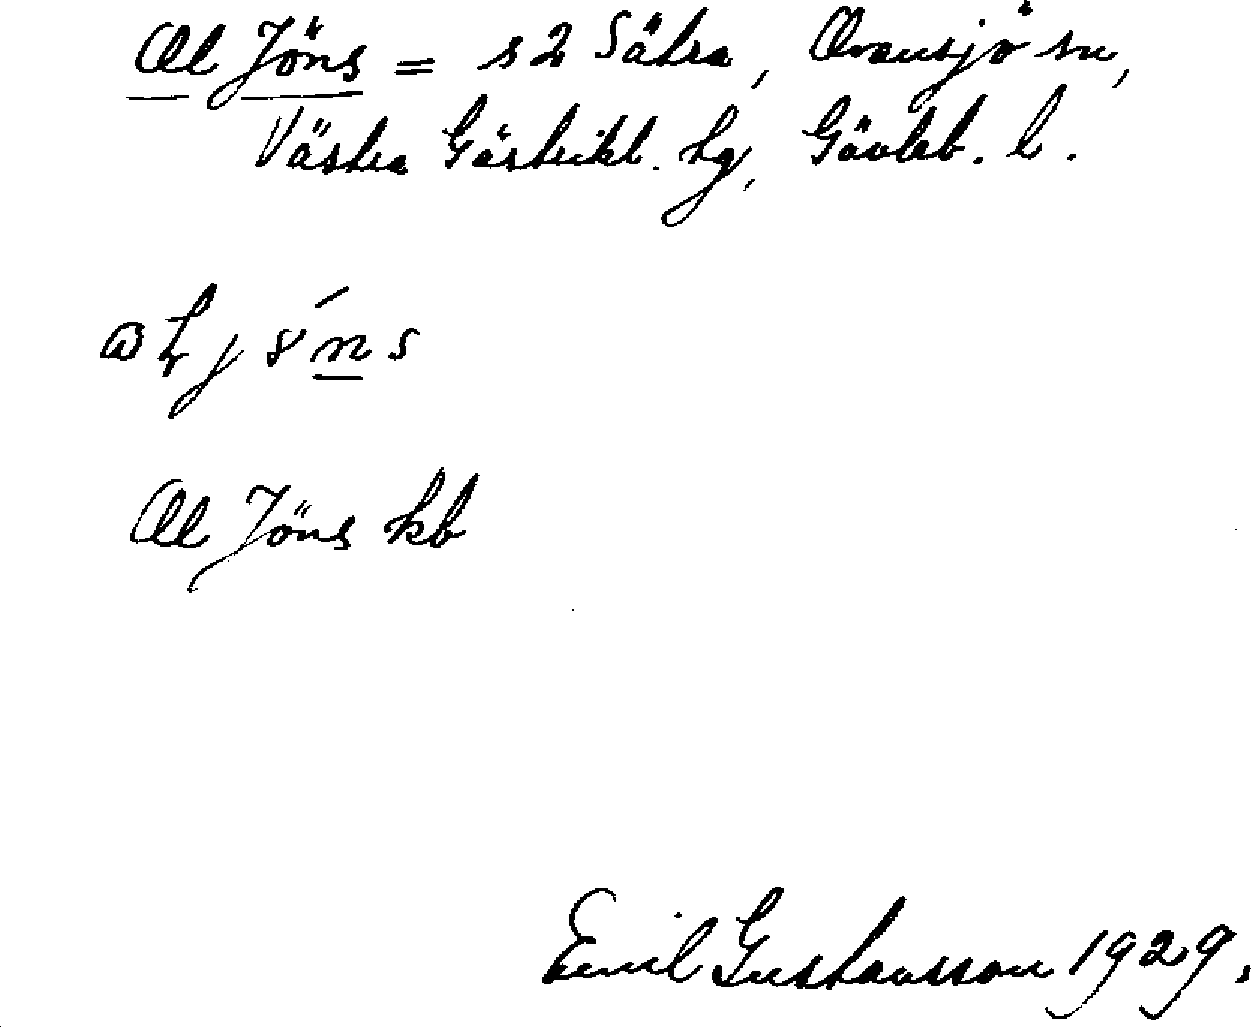 Ol Jöns = s 2 Sätra, Ovansjö sn,
Västra Gästrikl. hg, Gävleb. l.
Ol Jöns kb
Emil Gustavsson 1929.